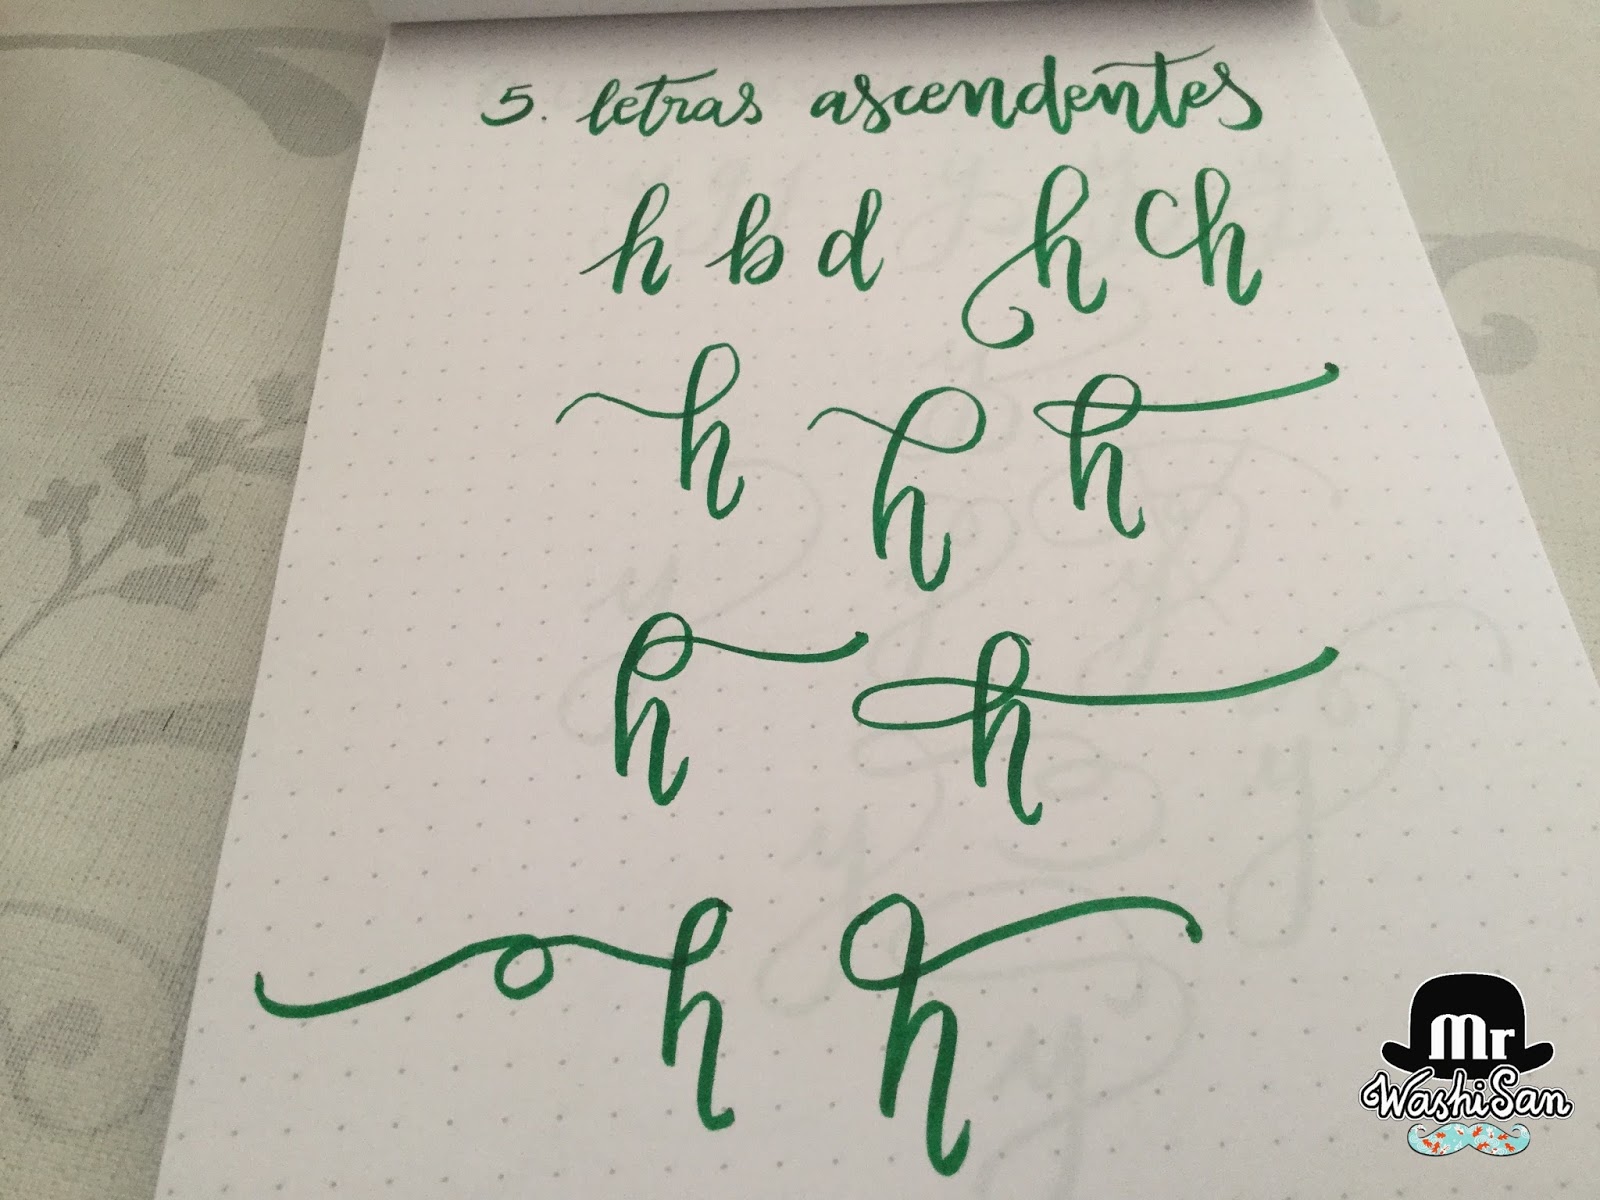 5. letras ascendentes
h b d h h
h h h
h h
h h
Mr
WashiSan